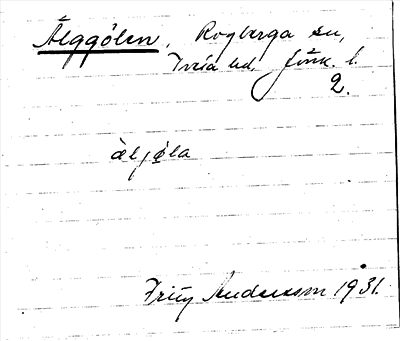 Älggölen, Rogberga sn,
Tveta hd, Jönk. l.
2.
àljǿla
Fritz Andersson 1931.